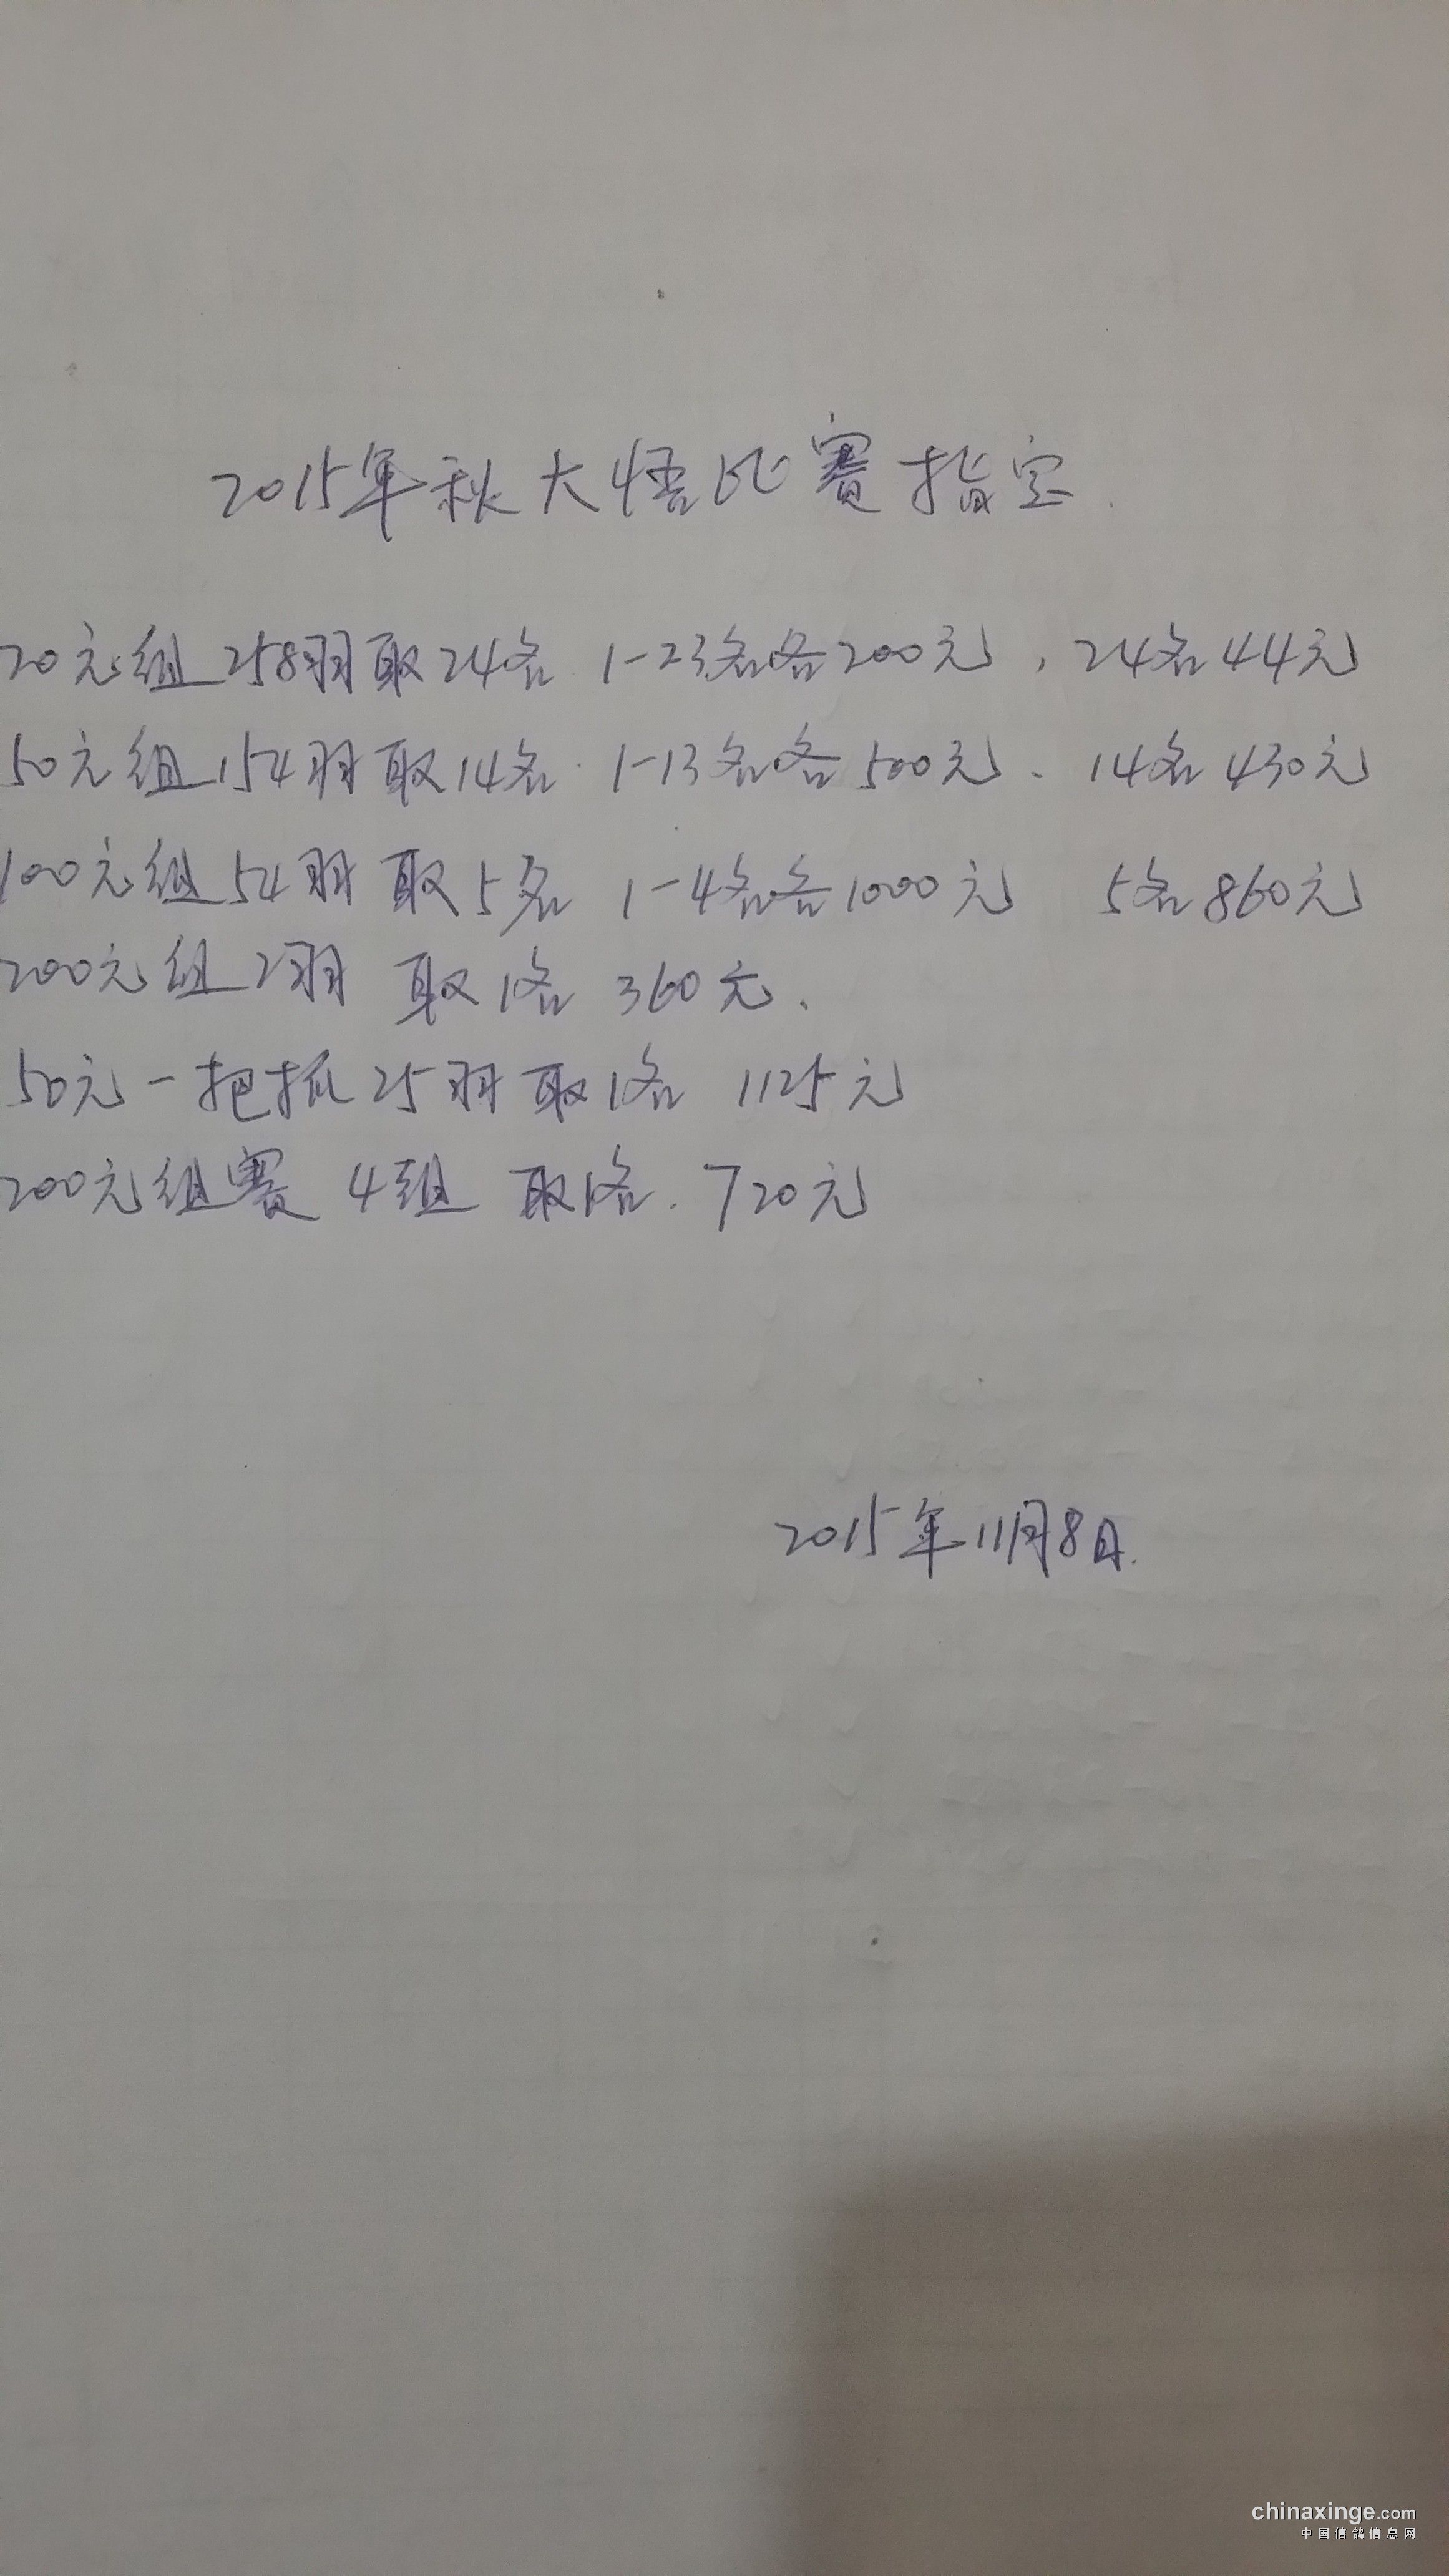 2015年秋大悟比赛指定.
20元组258羽取24名 1-23名各200元，24名44元
50元组154羽取14名 1-13名各500元、14名430元
100元组54羽取5名 1-4名各1000元 5名860元
200元组2羽 取1名 360元、
50元一把抓25羽取1名 1125元
200元组赛 4组 取1名.720元
2015年11月8日.
chinaxinge.com
中国信鸽信息网